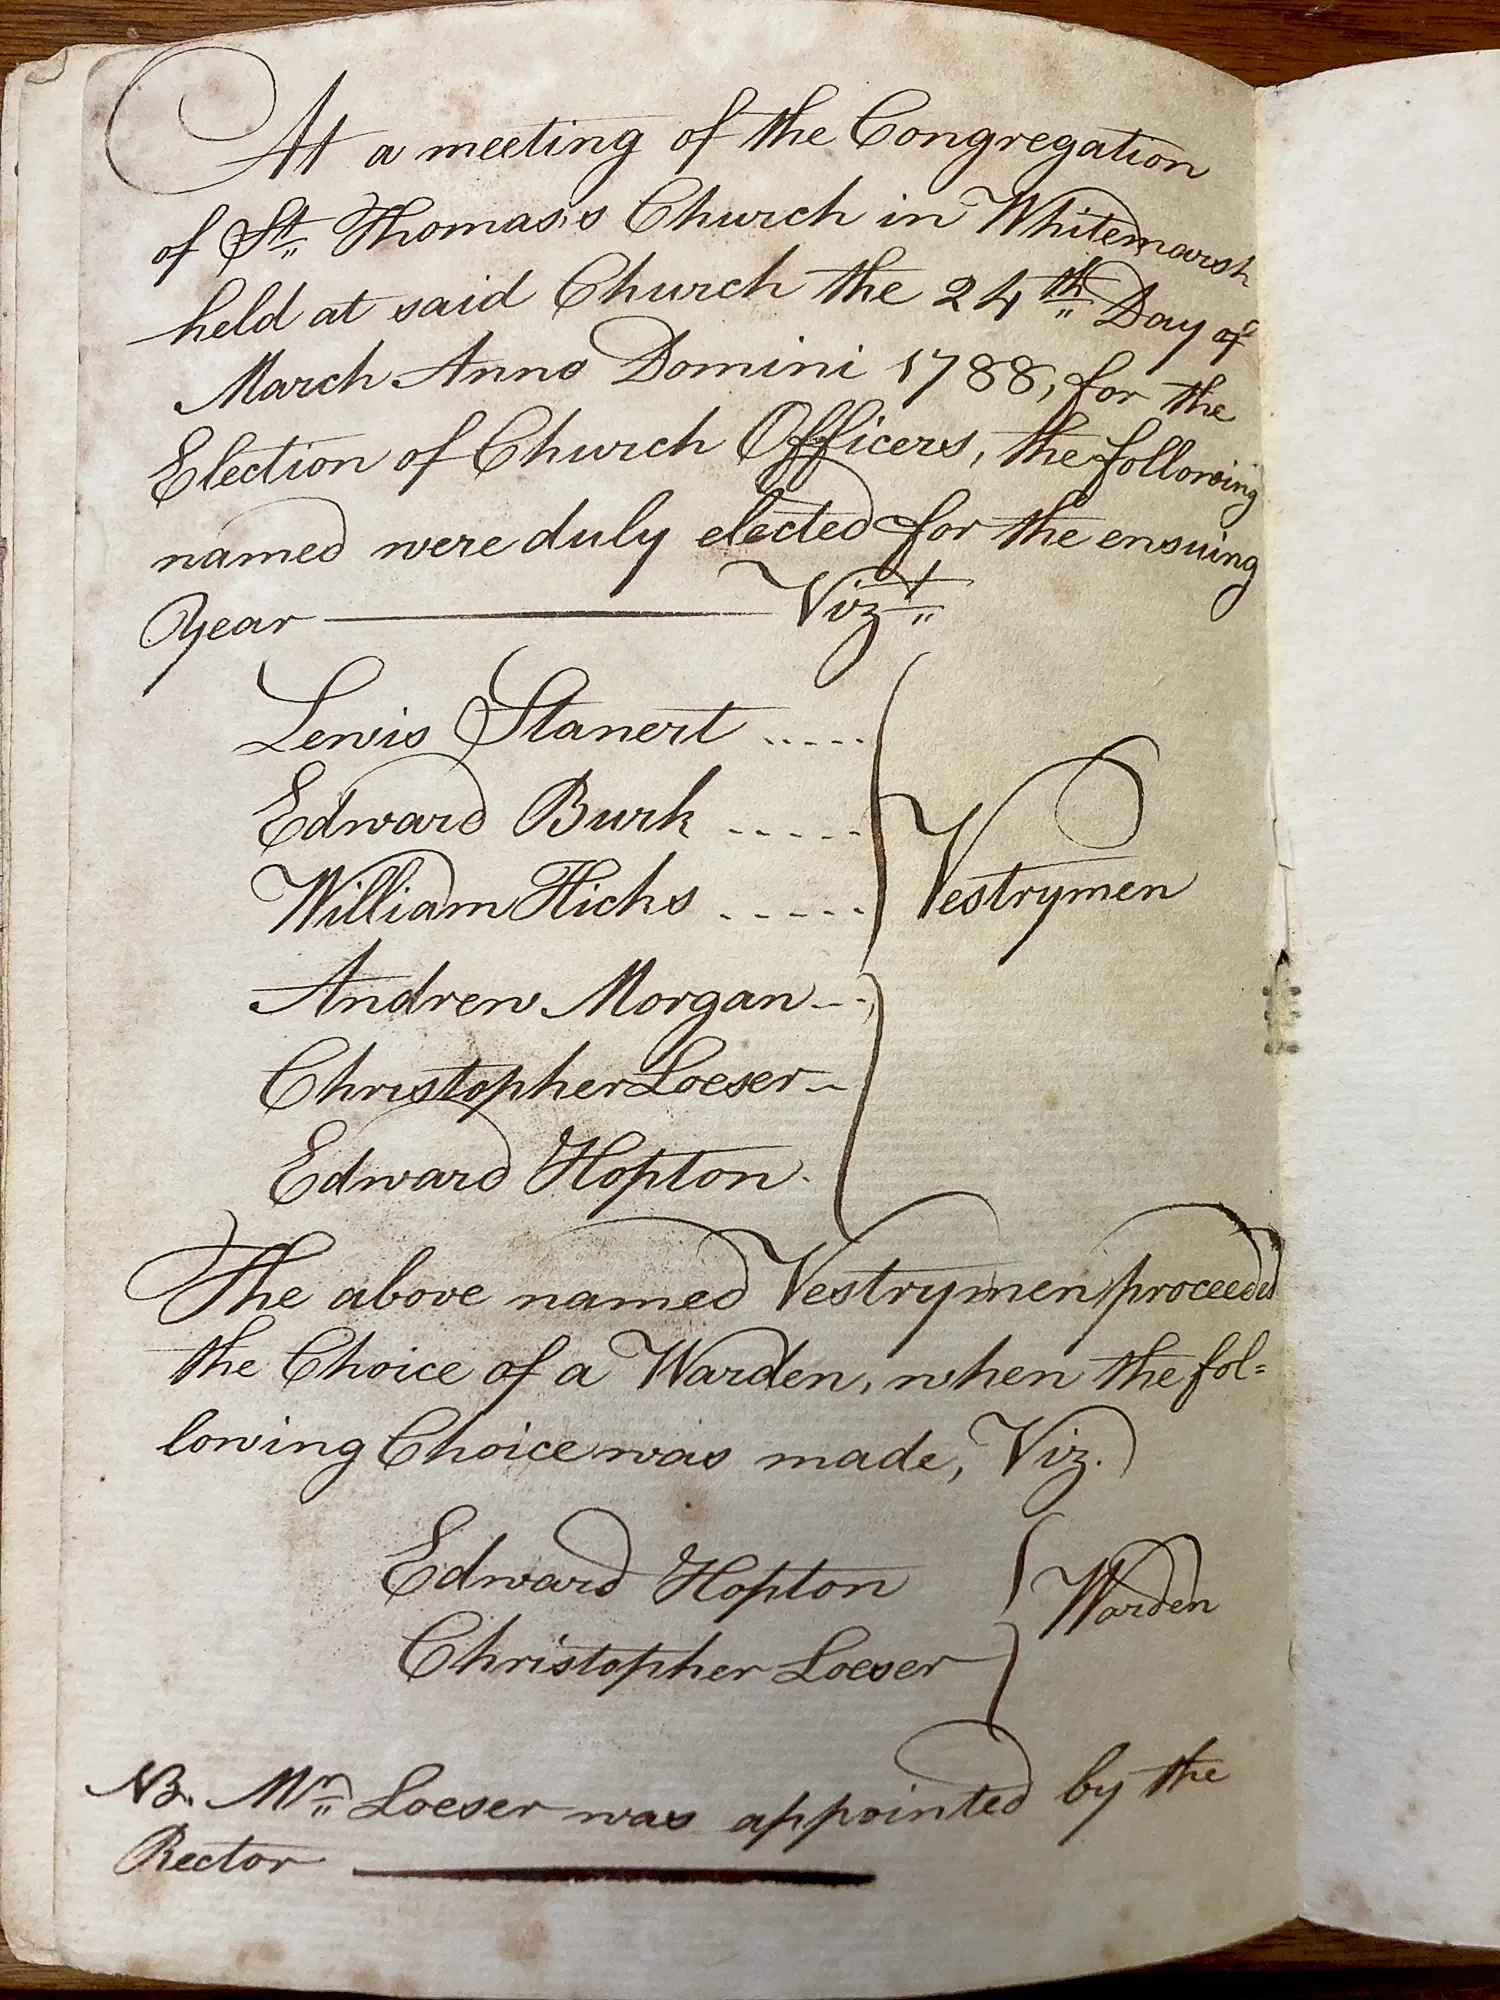 At a meeting of the Congregation
of St. Thomas's Church in Whitemarsh
held at said Church the 24th Day of
March Anno Domini 1788, for the
Election of Church Officers, the following
named were duly elected for the ensuing
Year ——— Vizt
Lewis Stanert .....
Edward Burk .....
William Hicks ..... Vestrymen
Andrew Morgan ...
Christopher Loeser --
Edward Hopton.
The above named Vestrymen proceeded
the Choice of a Warden, when the fol=
lowing Choice was made, Viz.)
Edward Hopton Warden
Christopher Loeser
NB. Mr. Loeser was appointed by the
Rector ———